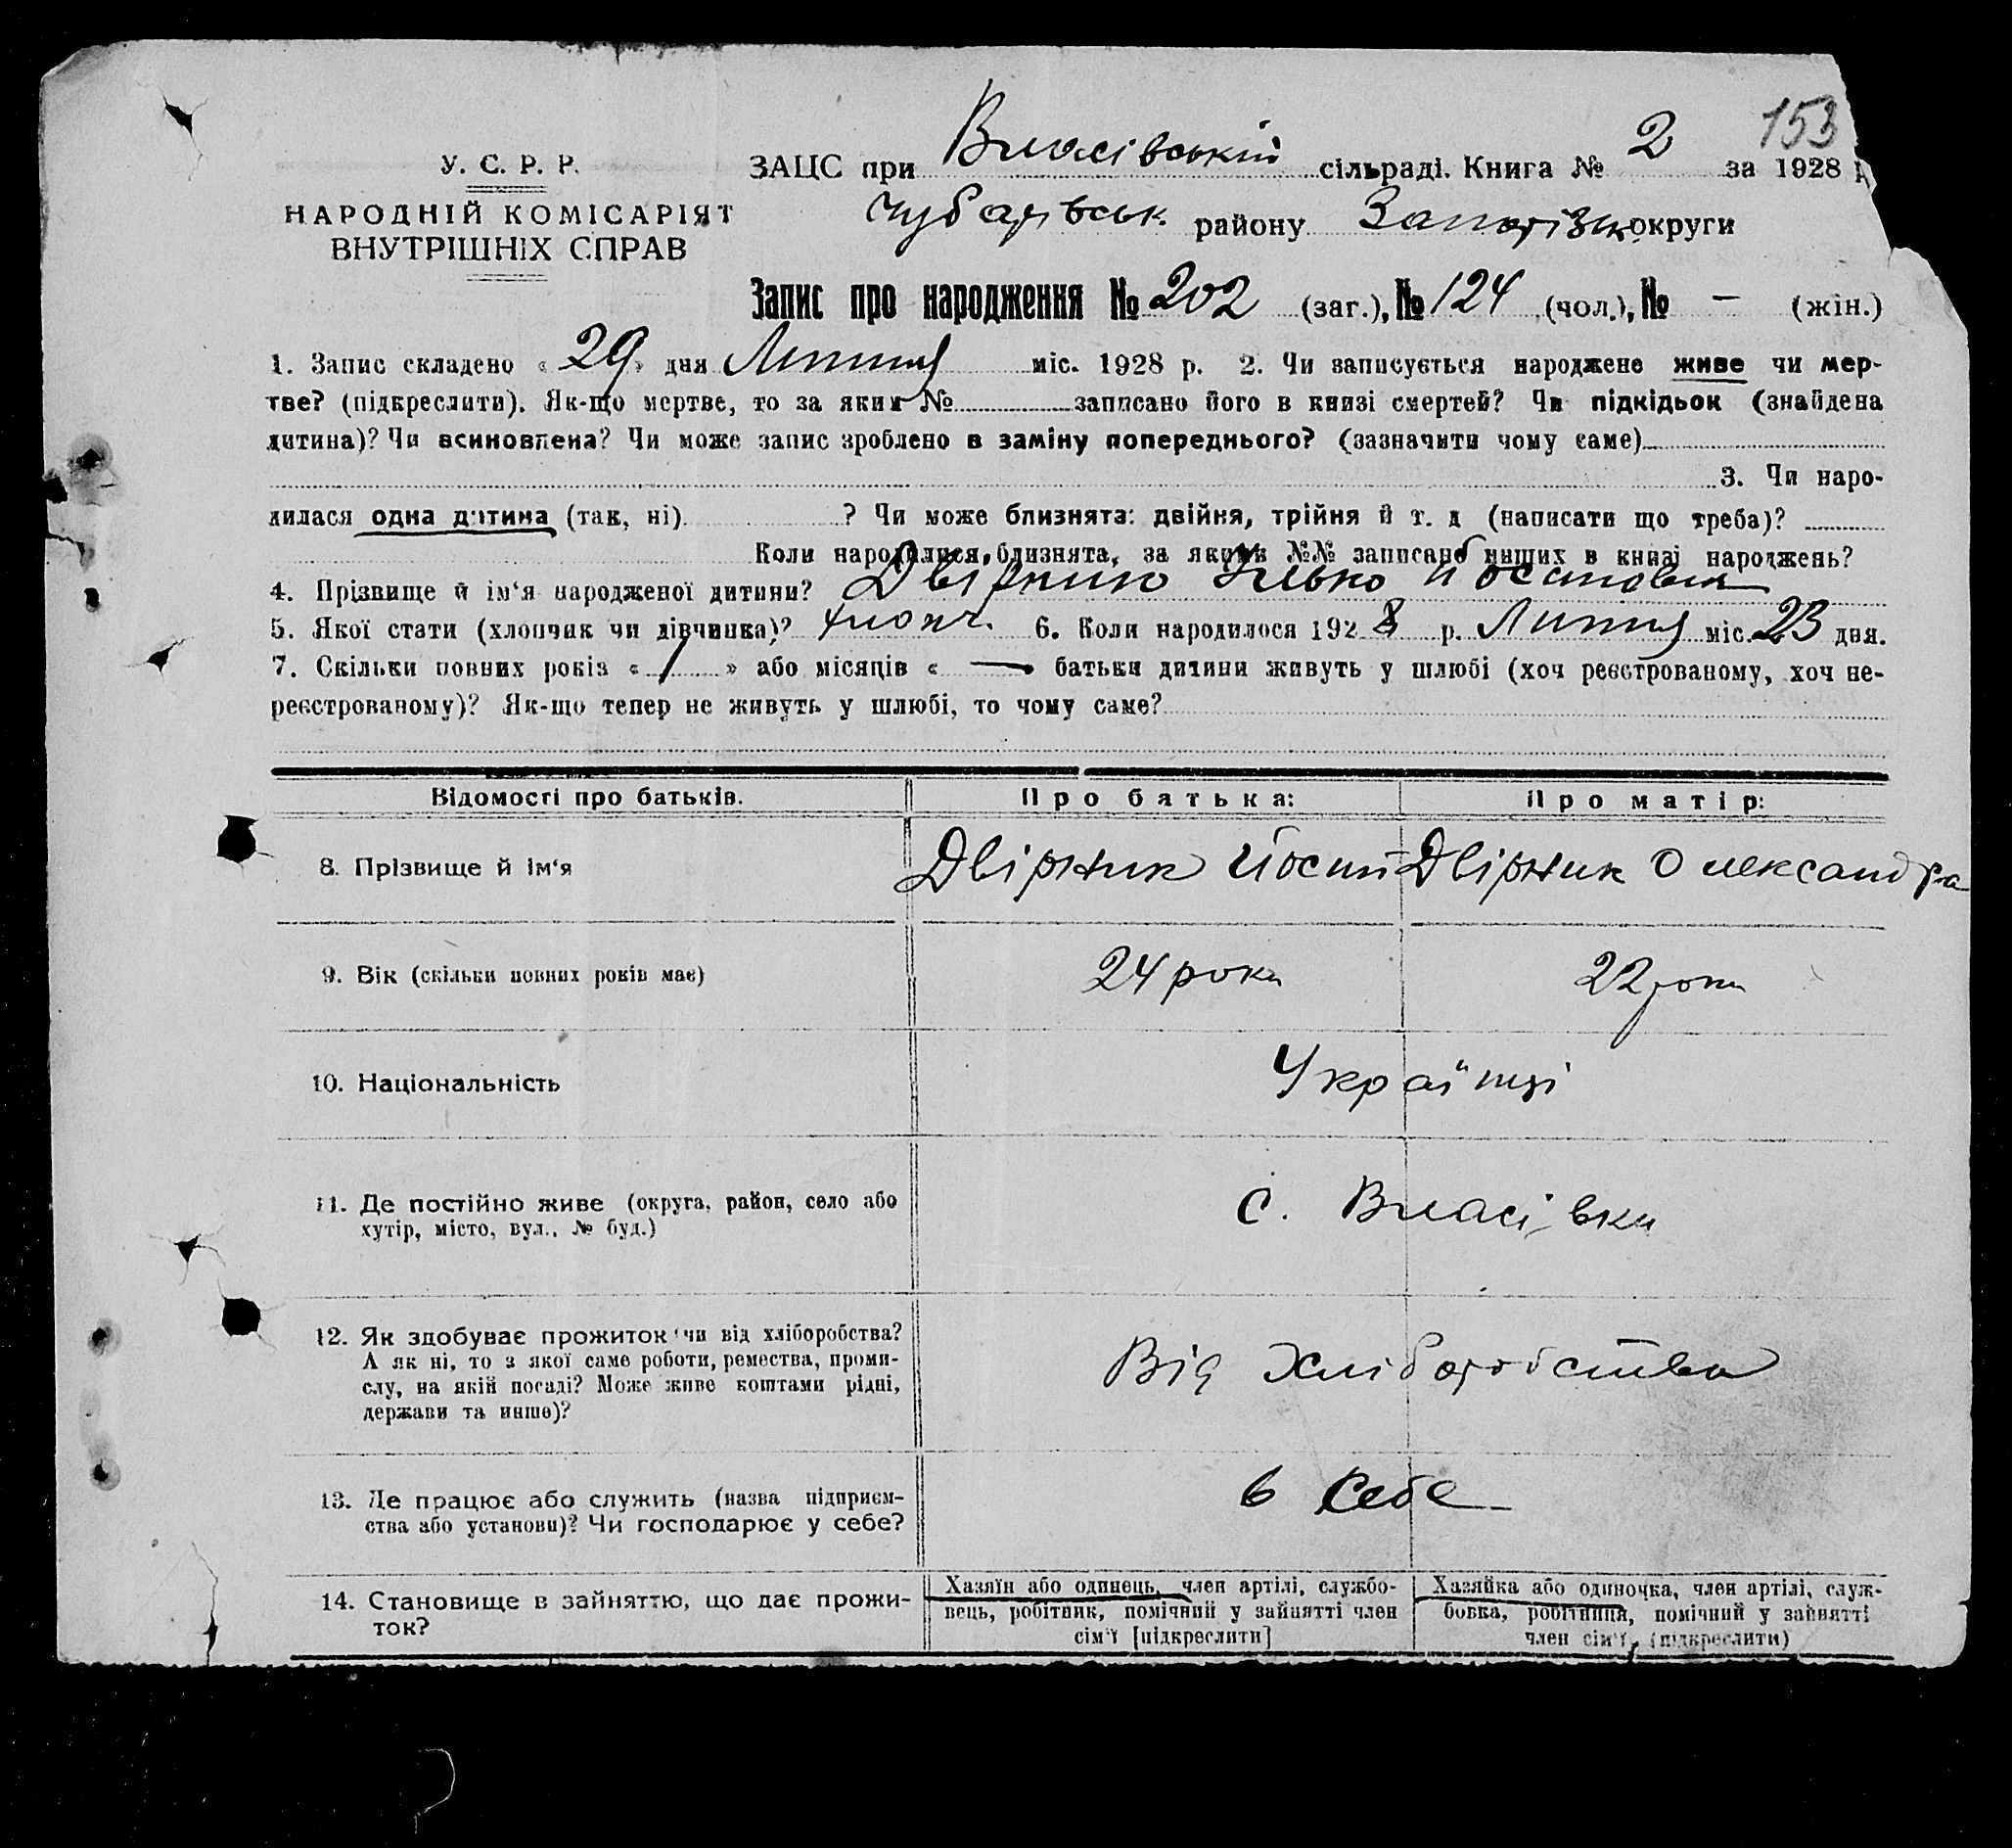 153
У. С. Р. Р.
НАРОДНІЙ КОМІСАРІЯТ
ВНУТРІШНІХ СПРАВ
ЗАЦС при Власівській сільраді. Книга № 2 за 1928 р
Чубарівськ. району Запорізьк. округи
Запис про народження № 202 (заг.), № 124 (чол.), № — (жін.)
1. Запис складено « 29 » дня Липня міс. 1928 р. 2. Чи записується народжене живе чи мер-
тве? (підкреслити). Як-що мертве, то за яким № записано його в книзі смертей? Чи підкідьок (знайдена
дитина)? Чи всиновлена? Чи може запис зроблено в заміну попереднього? (зазначити чому саме)
3. Чи наро-
дилася одна дитина (так, ні) ? Чи може близнята: двійня, трійня й т. д (написати що треба)?
Коли народилися близнята, за якими №№ записано инших в книзі народжень?
4. Прізвище й ім'я народженої дитини? Двірник
5. Якої стати (хлопчик чи дівчинка)? хлопч. 6. Коли народилося 1928 р. Липня міс. 23 дня.
7. Скільки повних років « 1 » або місяців « — » батьки дитини живуть у шлюбі (хоч реєстрованому, хоч не-
реєстрованому)? Як-що тепер не живуть у шлюбі, то чому саме?
Відомості про батьків. Про батька: Про матір:
8. Прізвище й ім'я Двірник Йосип Двірник Олександра
9. Вік (скільки повних років має) 24 роки 22 роки
10. Національність Українці
11. Де постійно живе (округа, район, село або
хутір, місто, вул., № буд.) с. Власівки
12. Як здобуває прожиток чи від хліборобства?
А як ні, то з якої саме роботи, ремества, проми-
слу, на якій посаді? Може живе коштами рідні,
держави та инше)? Від Хліборобства
13. Де працює або служить (назва підприєм-
ства або установи)? Чи господарює у себе? в себе
14. Становище в зайняттю, що дає прожи-
ток?
Хазяїн або одинець, член артілі, службо-
вець, робітник, помічний у зайнятті член
сім'ї [підкреслити]
Хазяйка або одиночка, член артілі, служ-
бовка, робітниця, помічний у зайнятті
член сім'ї, (підкреслити)